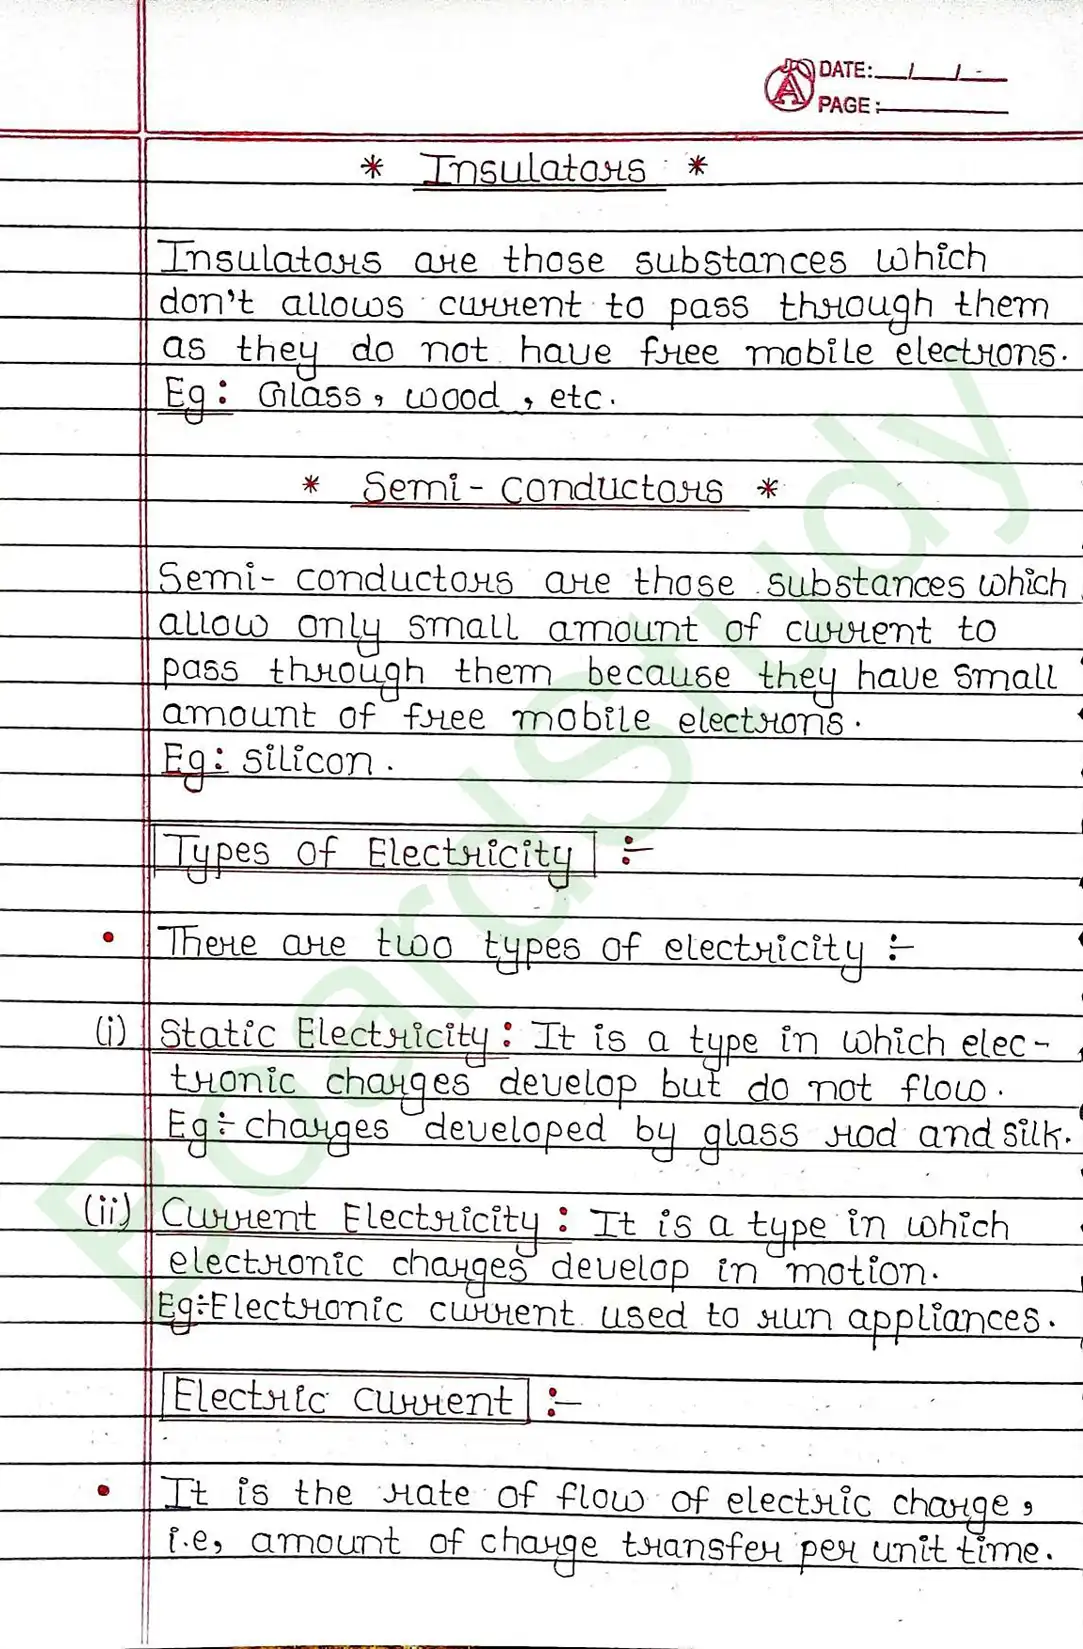 DATE: / /
PAGE:
* Insulators *
Insulators are those substances which
don't allows current to pass through them
as they do not have free mobile electrons.
Eg: Glass, wood, etc.
* Semi-conductors *
Semi-conductors are those substances which
allow only small amount of current to
pass through them because they have small
amount of free mobile electrons.
Eg: silicon.
Types of Electricity :-
• There are two types of electricity :-
(i) Static Electricity: It is a type in which elec-
tronic charges develop but do not flow.
Eg:- charges developed by glass rod and silk.
(ii) Current Electricity: It is a type in which
electronic charges develop in motion.
Eg:- Electronic current used to run appliances.
Electric current :-
• It is the rate of flow of electric charge,
i.e, amount of charge transfer per unit time.
BoardStudy